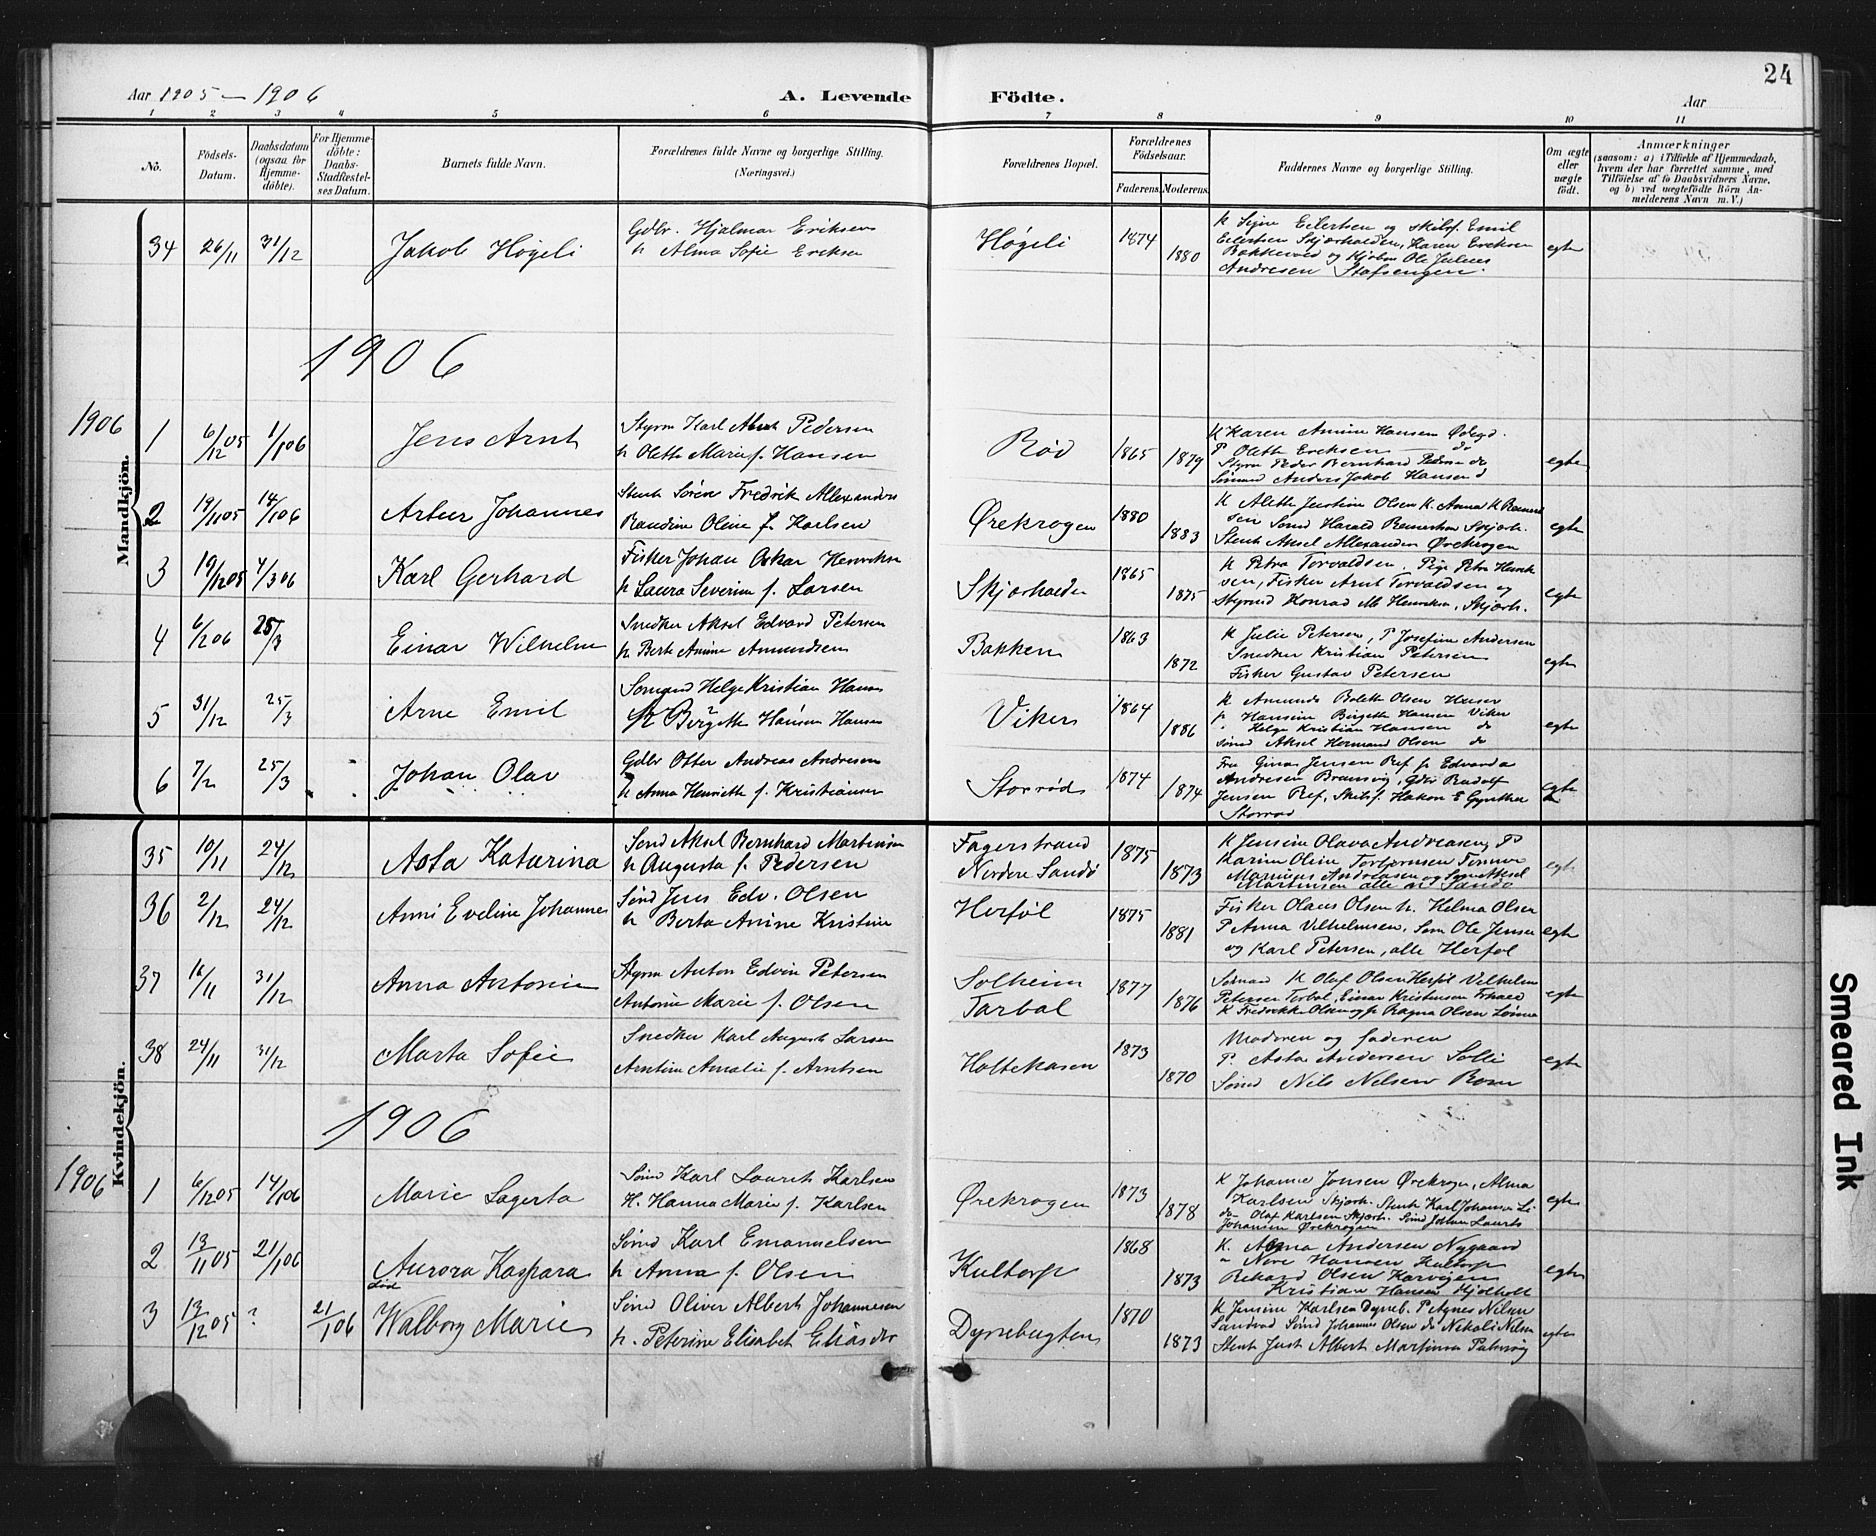 24
Aar 1905 - 1906
A. Levende Födte.
Aar
1 2 3 4 5 6 7 8 9 10 11
No.
Födsels-Datum.
Daabsdatum (ogsaa for Hjemme-döbte).
For Hjemme-döbte: Daabs-Stadfæstelses Datum.
Barnets fulde Navn.
Forældrenes fulde Navne og borgerlige Stilling. (Næringsvei.)
Forældrenes Bopæl.
Forældrenes Födselsaar.
Faderens. Moderens.
Faddernes Navne og borgerlige Stilling.
Om ægte eller uægte födt.
Anmærkninger
(saasom: a) i Tilfælde af Hjemmedaab, hvem der har forrettet samme, med Tilföielse af to Daabsvidners Navne, og b) ved uægtefödte Börn Anmelderens Navn m. V.)
Mandkjön.
34 26/11 31/12 Jakob Høgeli
Gdbr. Hjalmar Eriksen
h Alma Sofie Eriksen
Høgeli 1874 1880
K Signe Eilertsen og skibsf. Emil
Eilertsen Skjærhalden, Karen Eriksen
Bakkeved og Ole Julius
Andresen Stafsengen. egte
1906
1906
1 6/12 05 1/1 06 Jens Arnt
Styrm Karl Albert Pedersen
h Oleth Marie f. Hansen
Rød 1865 1879
K Karen Amine Hansen Ødegd.
P Oleth Eriksen do
Styrm Peder Bernhard Pedersen do
Sømand Anders Jakob Hansen d egte
2 19/11 05 14/1 06 Artur Johannes
Stenh Søren Fredrik Allexanders
Randine Oline f. Karlsen
Ørekrogen 1880 1883
K Alethe Justine Olsen K. Anna K Reinert
sen Sømd Harald Reinertsen Skjærh.
Stenh Aksel Allexander Ørekrogen egte
3 19/12 05 4/3 06 Karl Gerhard
Fisker Johan Oskar Henriksen
h Laura Severine f. Larsen
Skjærhalden 1865 1875
K Petra Torvaldsen, Pige Petra Henrik
sen, Fisker Arnt Torvaldsen og
Styrmd Konrad M Henriksen, Skjærh. egte
4 6/2 06 25/3 Einar Wilhelm
Snedker Aksel Edvard Petersen
h Berte Amine Amundsen
Bakken 1863 1872
K Julie Petersen, P Josefine Andersen
Snedker Kristian Petersen
Fisker Gustav Petersen egte
5 31/12 25/3 Arne Emil
Sømand Helge Kristian Hansen
h Birgette Hansen Hansen
Viker 1864 1886
K Amunda Bolette Olsen Huser
p Hansine Birgette Hansen Viker
" Helge Kristian Hansen do
Sømd Aksel Hermand Olsen do egte
6 7/2 25/3 Johan Olav
Gdbr Otter Andreas Andresen
h Anna Henriette f. Kristiansen
Storrød 1874 1874
Fru Gina Jensen Ref p Edvarda
Andresen Bramsvig, Gdbr Rudolf
Jensen Ref, Skibsf. Hakon E Gynther
Storrød egte
Kvindekjön.
35 10/11 24/12 Asta Katarina
Sømd Aksel Bernhard Martinsen
h Augusta f. Pedersen
Fagerstrand
Nordre Sandø 1875 1873
K Jensine Olava Andreasen, P
Karine Oline Torbjørnsen Tømmer
Andreasen og Sømd Aksel
Martinsen alle af Sandø egte
36 2/12 24/12 Anni Eveline Johannes
Sømd Jens Edv. Olsen
h Berta Amine Kristine
Herføl 1875 1881
Fisker Olaus Olsen h. Helma Olsen
P Anna Vilhelmsen, Søm Ole Jensen
og Karl Petersen, alle Herføl egte
37 16/11 31/12 Anna Antonie
Styrm Anton Edvin Petersen
Antonie Marie f. Olsen
Solheim
Tarbal 1877 1876
Sømand K Olaf Olsen Herføl Vilhelm
Petersen Tarbal, Einar Kristensen
K Fredrikke Olsen og p Ragna Olsen egte
38 24/11 31/12 Marta Sofie
Snedker Karl August Larsen
Arntine Amalie f. Arntsen
Holtekasen 1873 1870
Moderen og faderen
P. Asta Andersen Solli
Sømd Nils Nilsen Roen egte
1906
1906
1 6/12 05 14/1 06 Marie Lagerta
Sømd Karl Laurits Karlsen
H. Hanna Marie f. Karlsen
Ørekrogen 1873 1878
K Johanne Jonsen Ørekrogen, Alma
Karlsen Skjærh. Stenh Karl Johansen Li
do Olaf Karlsen Skjærh. Sømd Johan Laurits
Johansen Ørekrogen egte
2 13/11 05 21/1 06 Aurora Kaspara
Sømd Karl Emanuelsen
h Anna f. Olsen
Kultorp 1868 1873
K. Anna Andersen Nygaard
" Hansen Kultorp
Rekard Olsen Karvigen
Kristian Hansen Kjølholt egte
3 13/12 05 ? 21/1 06 død Walborg Marie
Sømd Oliver Albert Johannesen
h. Peterine Elisabet Eliasdr
Dynebugten 1870 1873
K Jensine Karlsen Dyneb. P Agnes Nilsen
Sandrød Sømd Johannes Olsen do Nikoli Nilsen
Stenh Just Albert Martinsen egte
Smeared Ink